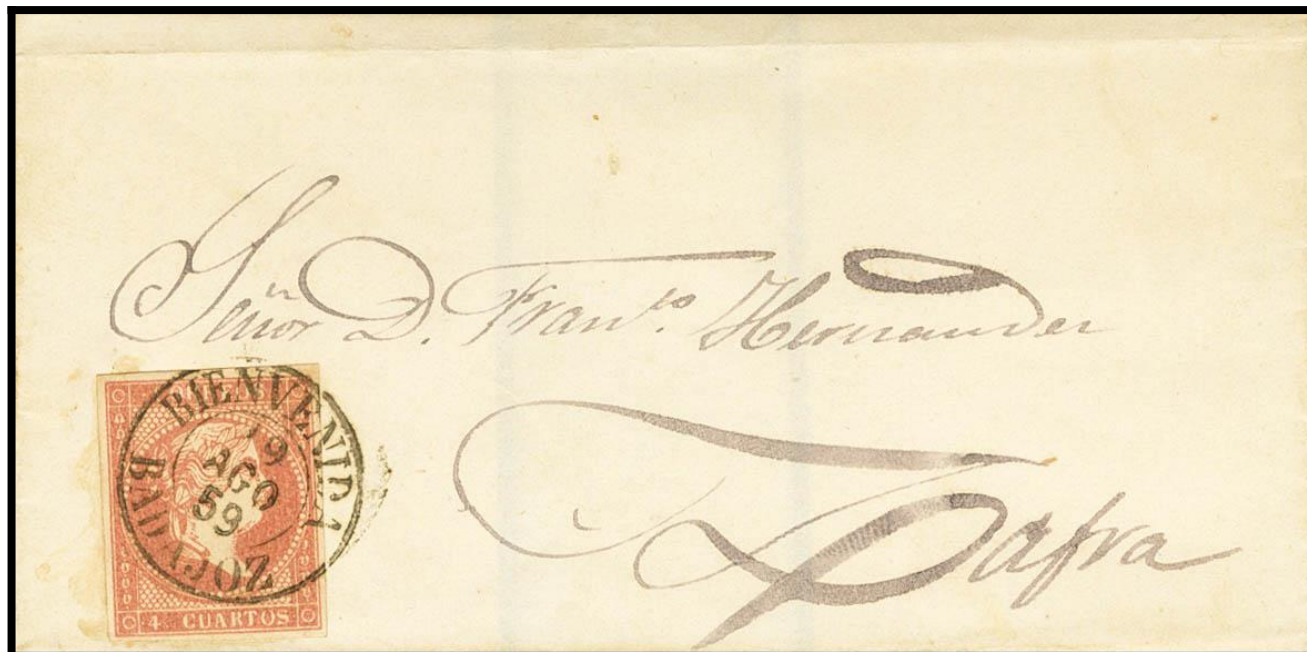 Señor D. Fran.co Hernandez
Zafra
BIENVENIDA
19
AGO
59
BADAJOZ
4 CUARTOS